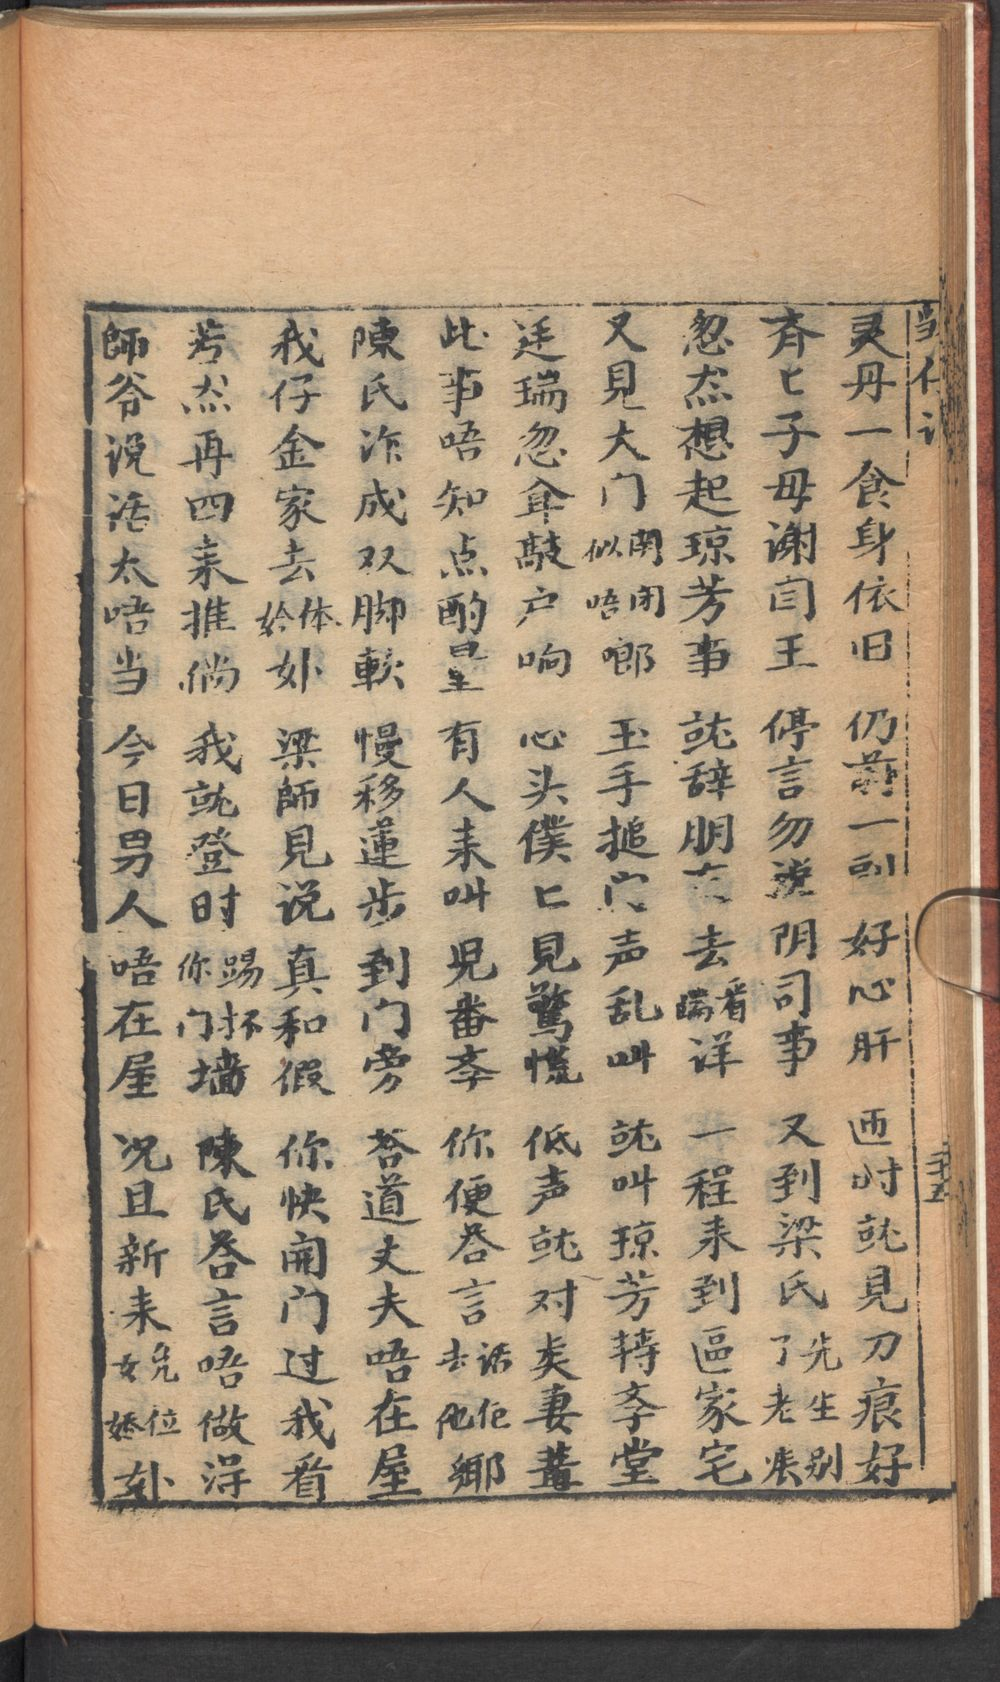 灵丹一食身依旧　仍前一刮好心肝　迊时就見刀痕好
斉匕子母谢闫王　停言勿说阴司事　又到梁氏先生别了老来
忽然想起琼芳事　就辞朋友去看端详　一程来到區家宅
又見大门閞闭似唔啷　玉手搥门声乱叫　就叫琼芳转夲堂
廷瑞忽耸敲户响　心头僕匕見驚慌　低声就对矣妻葍
此事唔知点酌量　有人来叫児番夲　你便答言话佢去他鄉
陳氏诈成双脚軟　慢移蓮步到门旁　荅道丈夫唔在屋
我仔金家去体妗外　梁師見说真和假　你快開门过我看
若然再四来推倘　我就登时踢坏你门墙　陳氏荅言唔做淂
師爷说话太唔当　今日男人唔在屋　况且新来位女